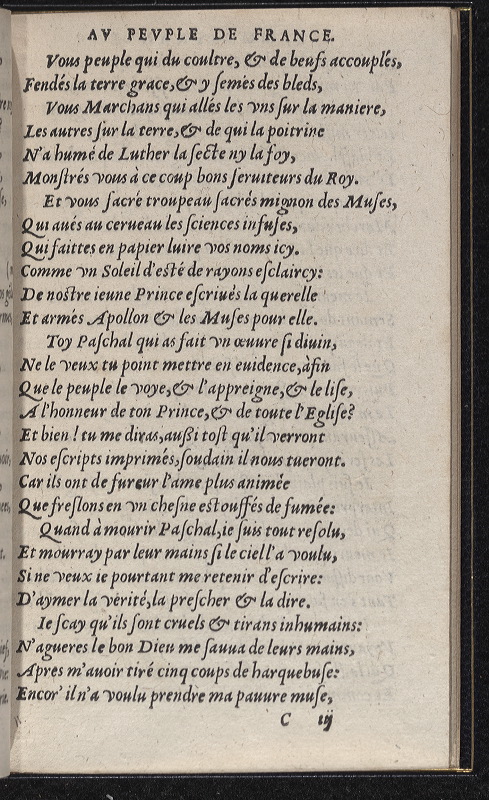 AV PEVPLE DE FRANCE.
Vous peuple qui du coultre, & de beufs accouplés,
Fendés la terre grace, & y semés des bleds,
Vous Marchans qui allés les vns sur la maniere,
Les autres sur la terre, & de qui la poitrine
N'a humé de Luther la secte ny la foy,
Monstrés vous à ce coup bons seruiteurs du Roy.
Et vous sacré troupeau sacrés mignon des Muses,
Qui aués au cerueau les sciences infuses,
Qui faittes en papier luire vos noms icy.
Comme vn Soleil d'esté de rayons esclaircy:
De nostre ieune Prince escriués la querelle
Et armés Apollon & les Muses pour elle.
Toy Paschal qui as fait vn œuure si diuin,
Ne le veux tu point mettre en euidence, àfin
Que le peuple le voye, & l'appreigne, & le lise,
A l'honneur de ton Prince, & de toute l'Eglise?
Et bien! tu me diras, außi tost qu'il verront
Nos escripts imprimés, soudain il nous tueront.
Car ils ont de fureur l'ame plus animée
Que freslons en vn chesne estouffés de fumée:
Quand à mourir Paschal, ie suis tout resolu,
Et mourray par leur mains si le ciel l'a voulu,
Si ne veux ie pourtant me retenir d'escrire:
D'aymer la verité, la prescher & la dire.
Ie scay qu'ils sont cruels & tirans inhumains:
N'agueres le bon Dieu me sauua de leurs mains,
Apres m'auoir tiré cinq coups de harquebuse:
Encor' il n'a voulu prendre ma pauure muse,
C iij